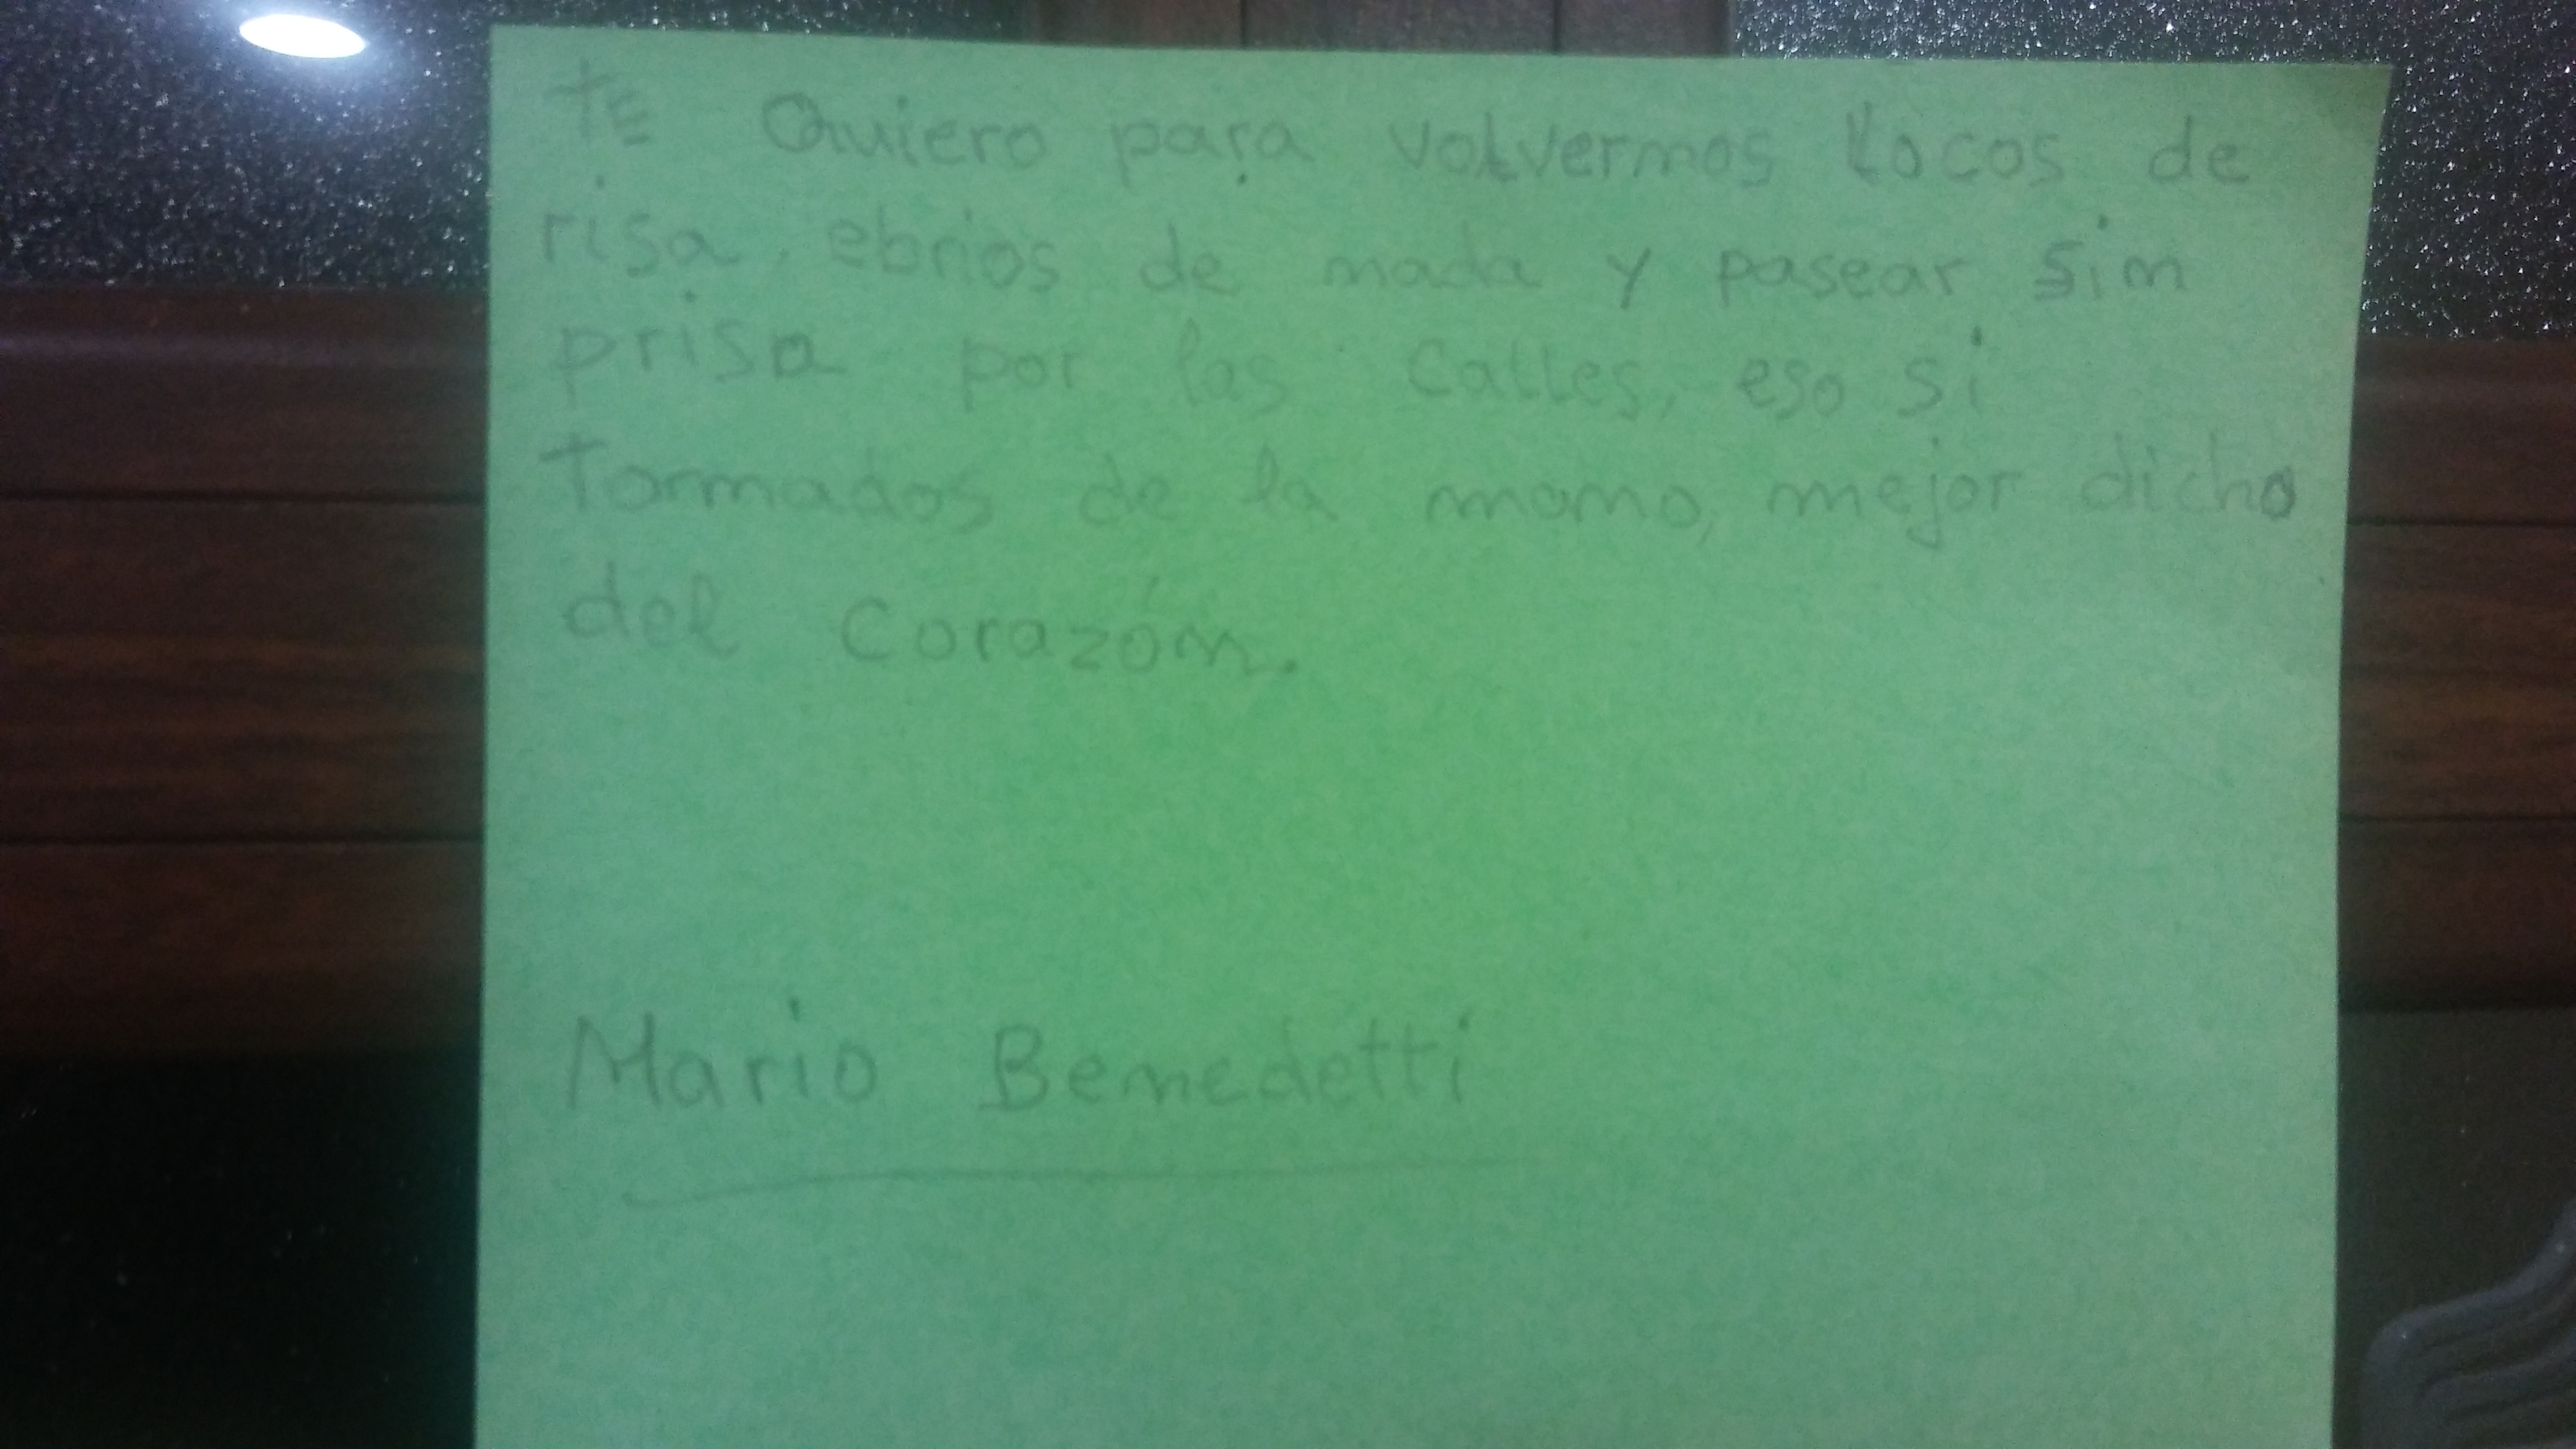 tE Quiero para volvernos locos de
risa, ebrios de nada y pasear sin
prisa por las calles, eso si
Tomados de la mano, mejor dicho
del corazón.
Mario Benedetti